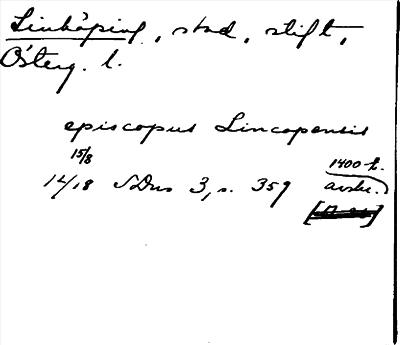 Linköping, stad, stift,
Österg. l.
episcopus Lincopensis
15/8
1418 SDns 3, s. 359
1400-t.
avskr.